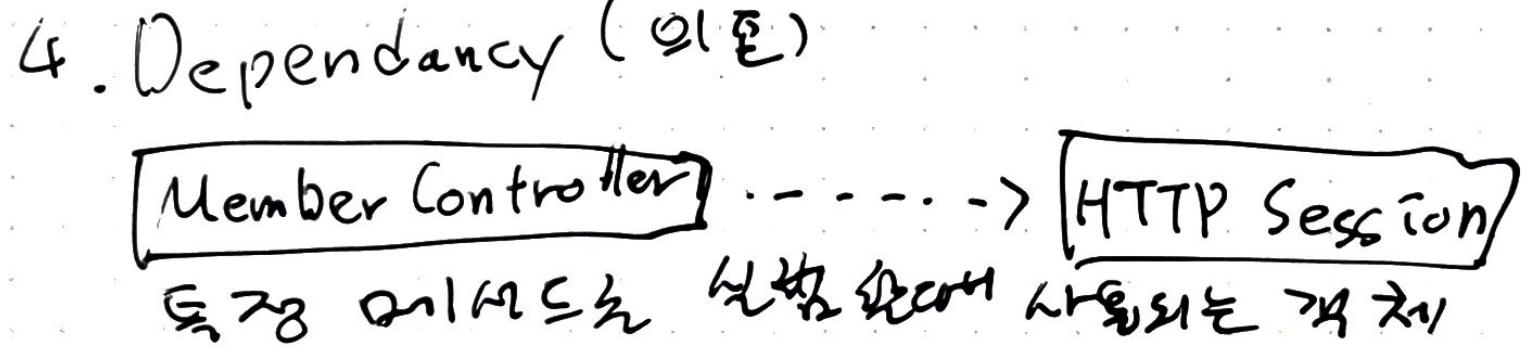 4. Dependancy (의존)
Member Controller -----> HTTP Session
특정 메서드는 실행할때 사용되는 객체